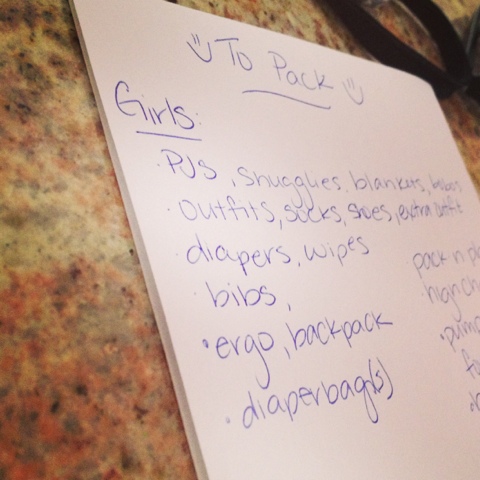 To Pack
Girls:
· PJS, snuggles, blankets, bobos
· outfits, socks, shoes, extra outfit
· diapers, wipes
· bibs,
· ergo, backpack
· diaperbag(s)
pack n